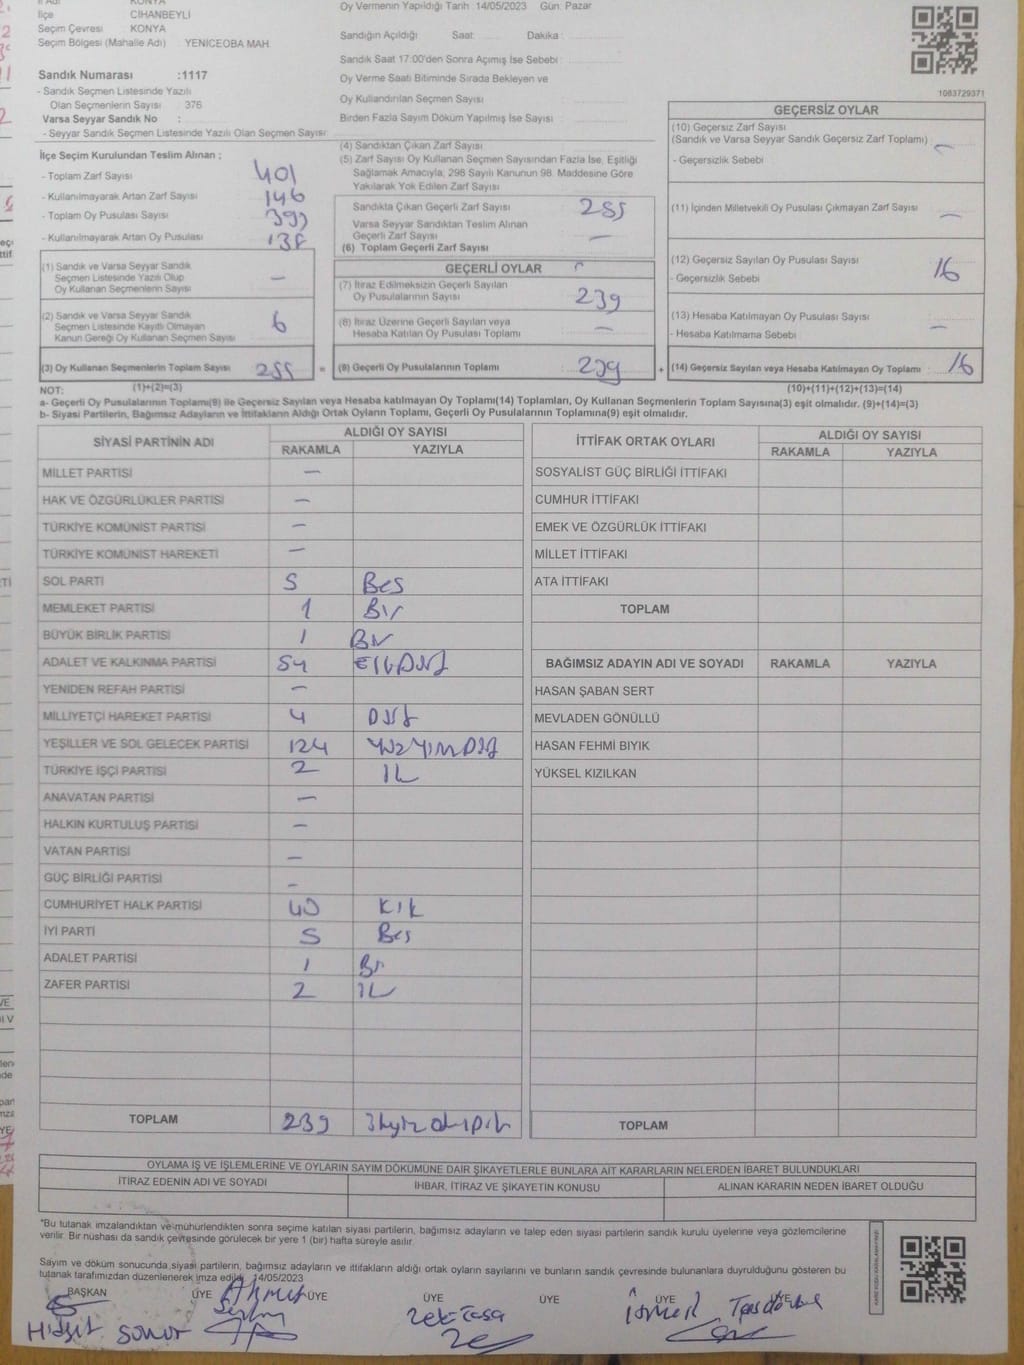 İlçe CİHANBEYLİ
Seçim Çevresi KONYA
Seçim Bölgesi (Mahalle Adı) YENİCEOBA MAH
Sandık Numarası :1117
- Sandık Seçmen Listesinde Yazılı
Olan Seçmenlerin Sayısı 376
Varsa Seyyar Sandık No :
- Seyyar Sandık Seçmen Listesinde Yazılı Olan Seçmen Sayısı
Oy Vermenin Yapıldığı Tarih :14/05/2023 Gün: Pazar
Sandığın Açıldığı Saat Dakika :
Sandık Saat 17:00'den Sonra Açılmış İse Sebebi
Oy Verme Saati Bitiminde Sırada Bekleyen ve
Oy Kullandırılan Seçmen Sayısı
Birden Fazla Sayım Döküm Yapılmış İse Sayısı
1083729371
İlçe Seçim Kurulundan Teslim Alınan ;
- Toplam Zarf Sayısı 401
- Kullanılmayarak Artan Zarf Sayısı 146
- Toplam Oy Pusulası Sayısı
- Kullanılmayarak Artan Oy Pusulası
(1) Sandık ve Varsa Seyyar Sandık
Seçmen Listesinde Yazılı Olup
Oy Kullanan Seçmenlerin Sayısı —
(2) Sandık ve Varsa Seyyar Sandık
Seçmen Listesinde Kayıtlı Olmayan
Kanun Gereği Oy Kullanan Seçmen Sayısı 6
(3) Oy Kullanan Seçmenlerin Toplam Sayısı 255 =
(4) Sandıktan Çıkan Zarf Sayısı
(5) Zarf Sayısı Oy Kullanan Seçmen Sayısından Fazla İse, Eşitliği
Sağlamak Amacıyla; 298 Sayılı Kanunun 98. Maddesine Göre
Yakılarak Yok Edilen Zarf Sayısı
Sandıkta Çıkan Geçerli Zarf Sayısı 255
Varsa Seyyar Sandıktan Teslim Alınan
Geçerli Zarf Sayısı —
(6) Toplam Geçerli Zarf Sayısı
GEÇERLİ OYLAR
(7) İtiraz Edilmeksizin Geçerli Sayılan
Oy Pusulalarının Sayısı 239
(8) İtiraz Üzerine Geçerli Sayılan veya
Hesaba Katılan Oy Pusulası Toplamı —
(9) Geçerli Oy Pusulalarının Toplamı : 239 +
GEÇERSİZ OYLAR
(10) Geçersiz Zarf Sayısı
(Sandık ve Varsa Seyyar Sandık Geçersiz Zarf Toplamı) : —
- Geçersizlik Sebebi
(11) İçinden Milletvekili Oy Pusulası Çıkmayan Zarf Sayısı —
(12) Geçersiz Sayılan Oy Pusulası Sayısı 16
- Geçersizlik Sebebi
(13) Hesaba Katılmayan Oy Pusulası Sayısı —
- Hesaba Katılmama Sebebi
(14) Geçersiz Sayılan veya Hesaba Katılmayan Oy Toplamı : 16
NOT: (1)+(2)=(3) (10)+(11)+(12)+(13)=(14)
a- Geçerli Oy Pusulalarının Toplamı(9) ile Geçersiz Sayılan veya Hesaba katılmayan Oy Toplamı(14) Toplamları, Oy Kullanan Seçmenlerin Toplam Sayısına(3) eşit olmalıdır. (9)+(14)=(3)
b- Siyasi Partilerin, Bağımsız Adayların ve İttifakların Aldığı Ortak Oyların Toplamı, Geçerli Oy Pusulalarının Toplamına(9) eşit olmalıdır.
SİYASİ PARTİNİN ADI ALDIĞI OY SAYISI
RAKAMLA YAZIYLA
MİLLET PARTİSİ —
HAK VE ÖZGÜRLÜKLER PARTİSİ —
TÜRKİYE KOMÜNİST PARTİSİ —
TÜRKİYE KOMÜNİST HAREKETİ —
SOL PARTİ 5 Bes
MEMLEKET PARTİSİ 1 Bir
BÜYÜK BİRLİK PARTİSİ 1 Bir
ADALET VE KALKINMA PARTİSİ 54
YENİDEN REFAH PARTİSİ —
MİLLİYETÇİ HAREKET PARTİSİ 4
YEŞİLLER VE SOL GELECEK PARTİSİ 124
TÜRKİYE İŞÇİ PARTİSİ 2
ANAVATAN PARTİSİ —
HALKIN KURTULUŞ PARTİSİ —
VATAN PARTİSİ —
GÜÇ BİRLİĞİ PARTİSİ —
CUMHURİYET HALK PARTİSİ 40
İYİ PARTİ 5 Bes
ADALET PARTİSİ 1 Bir
ZAFER PARTİSİ 2
TOPLAM 239
İTTİFAK ORTAK OYLARI ALDIĞI OY SAYISI
RAKAMLA YAZIYLA
SOSYALİST GÜÇ BİRLİĞİ İTTİFAKI
CUMHUR İTTİFAKI
EMEK VE ÖZGÜRLÜK İTTİFAKI
MİLLET İTTİFAKI
ATA İTTİFAKI
TOPLAM
BAĞIMSIZ ADAYIN ADI VE SOYADI RAKAMLA YAZIYLA
HASAN ŞABAN SERT
MEVLADEN GÖNÜLLÜ
HASAN FEHMİ BIYIK
YÜKSEL KIZILKAN
TOPLAM
OYLAMA İŞ VE İŞLEMLERİNE VE OYLARIN SAYIM DÖKÜMÜNE DAİR ŞİKAYETLERLE BUNLARA AİT KARARLARIN NELERDEN İBARET BULUNDUKLARI
İTİRAZ EDENİN ADI VE SOYADI İHBAR, İTİRAZ VE ŞİKAYETİN KONUSU ALINAN KARARIN NEDEN İBARET OLDUĞU
*Bu tutanak imzalandıktan ve mühürlendikten sonra seçime katılan siyasi partilerin, bağımsız adayların ve talep eden siyasi partilerin sandık kurulu üyelerine veya gözlemcilerine
verilir. Bir nüshası da sandık çevresinde görülecek bir yere 1 (bir) hafta süreyle asılır.
Sayım ve döküm sonucunda,siyasi partilerin, bağımsız adayların ve ittifakların aldığı ortak oyların sayılarını ve bunların sandık çevresinde bulunanlara duyrulduğunu gösteren bu
tutanak tarafımızdan düzenlenerek imza edildi. 14/05/2023
BAŞKAN ÜYE ÜYE ÜYE ÜYE ÜYE ÜYE